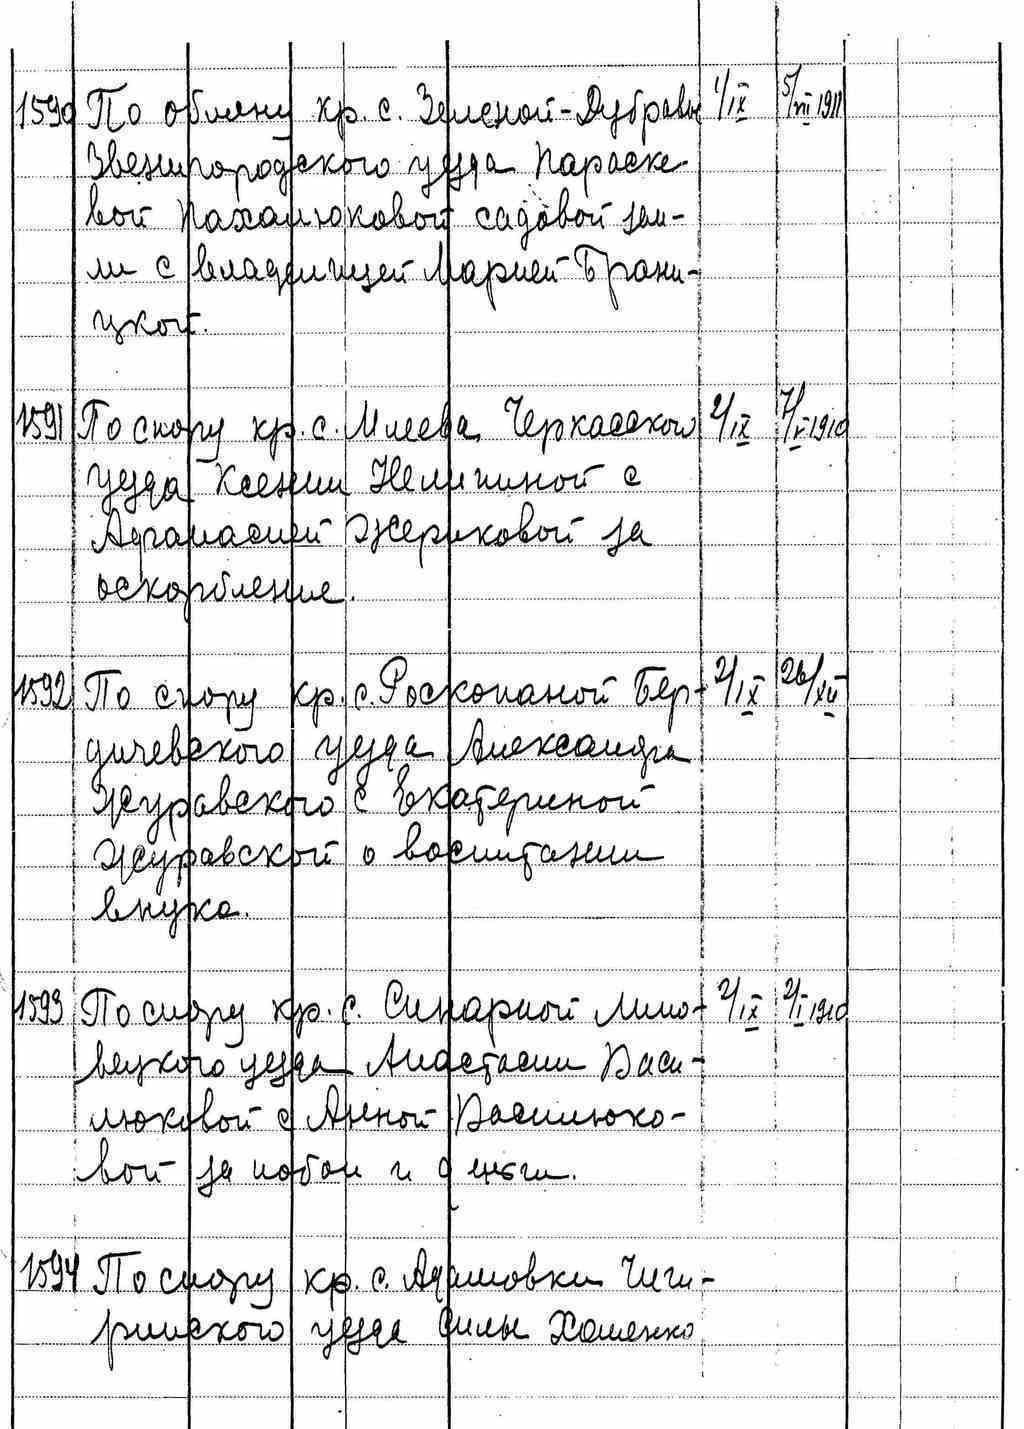 1590 По обмену кр. с. Зеленой-Дубравы 1/IX 5/VII 1911
Звенигородского уезда Параске-
вой Пахолюковой садовой зем-
ли с владелицей Марией Брани-
цкой.
1591 По спору кр. с. Млеева, Черкасского 2/IX 7/V 1910
уезда Ксении Нелипиной с
Афанасией Жериковой за
оскорбление.
1592 По спору кр. с. Росконаной Бер- 2/IX 26/XII
дичевского уезда Александра
Журавского с Екатериной
Журавской о воспитании
внука.
1593 По спору кр. с. Синарной Липо- 2/IX 2/I 1910
вецкого уезда Анастасии Васи-
люковой с Анной Василюко-
вой за побои и деньги.
1594 По спору кр. с. Адамовки Чиги-
ринского уезда Филы Хоменко